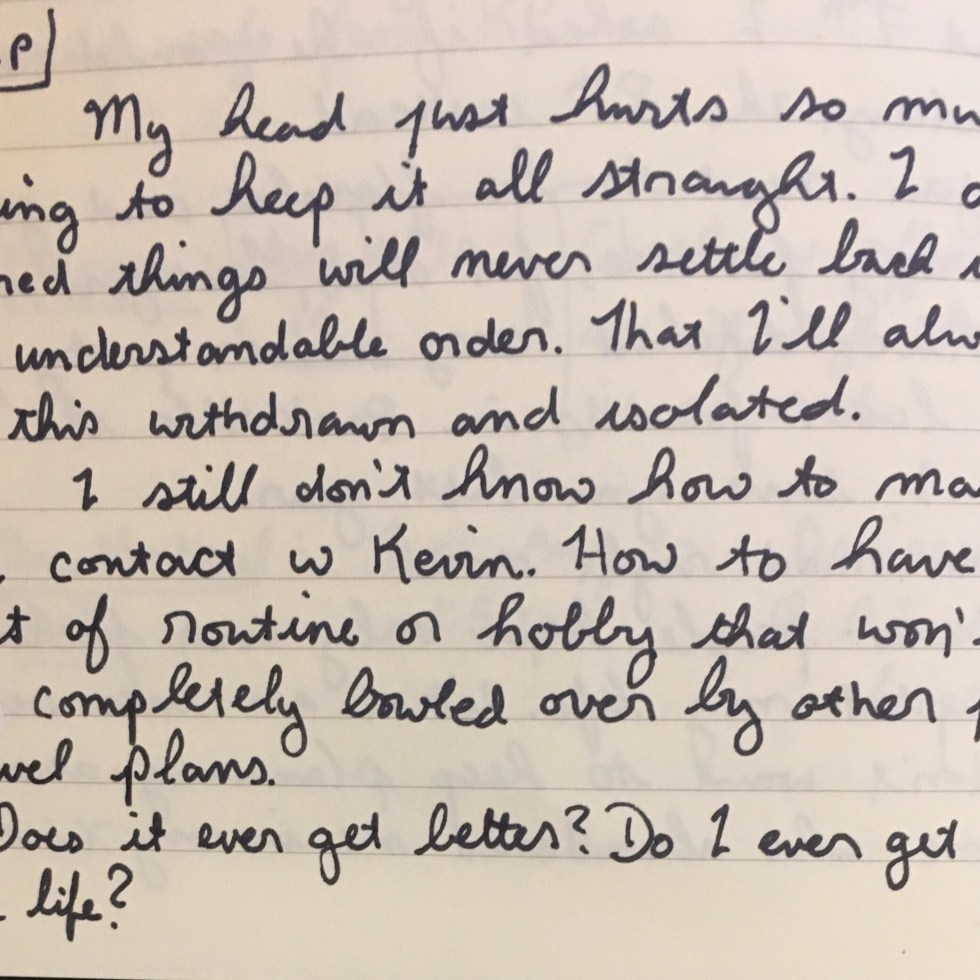 .P
My head just hurts so mu
ing to keep it all straight. I
ned things will never settle back
understandable order. That I'll alw
this withdrawn and isolated.
I still don't know how to ma
contact w Kevin. How to have
t of routine or hobby that won't
completely bowled over by other
vel plans.
Does it ever get better? Do I ever get
life?